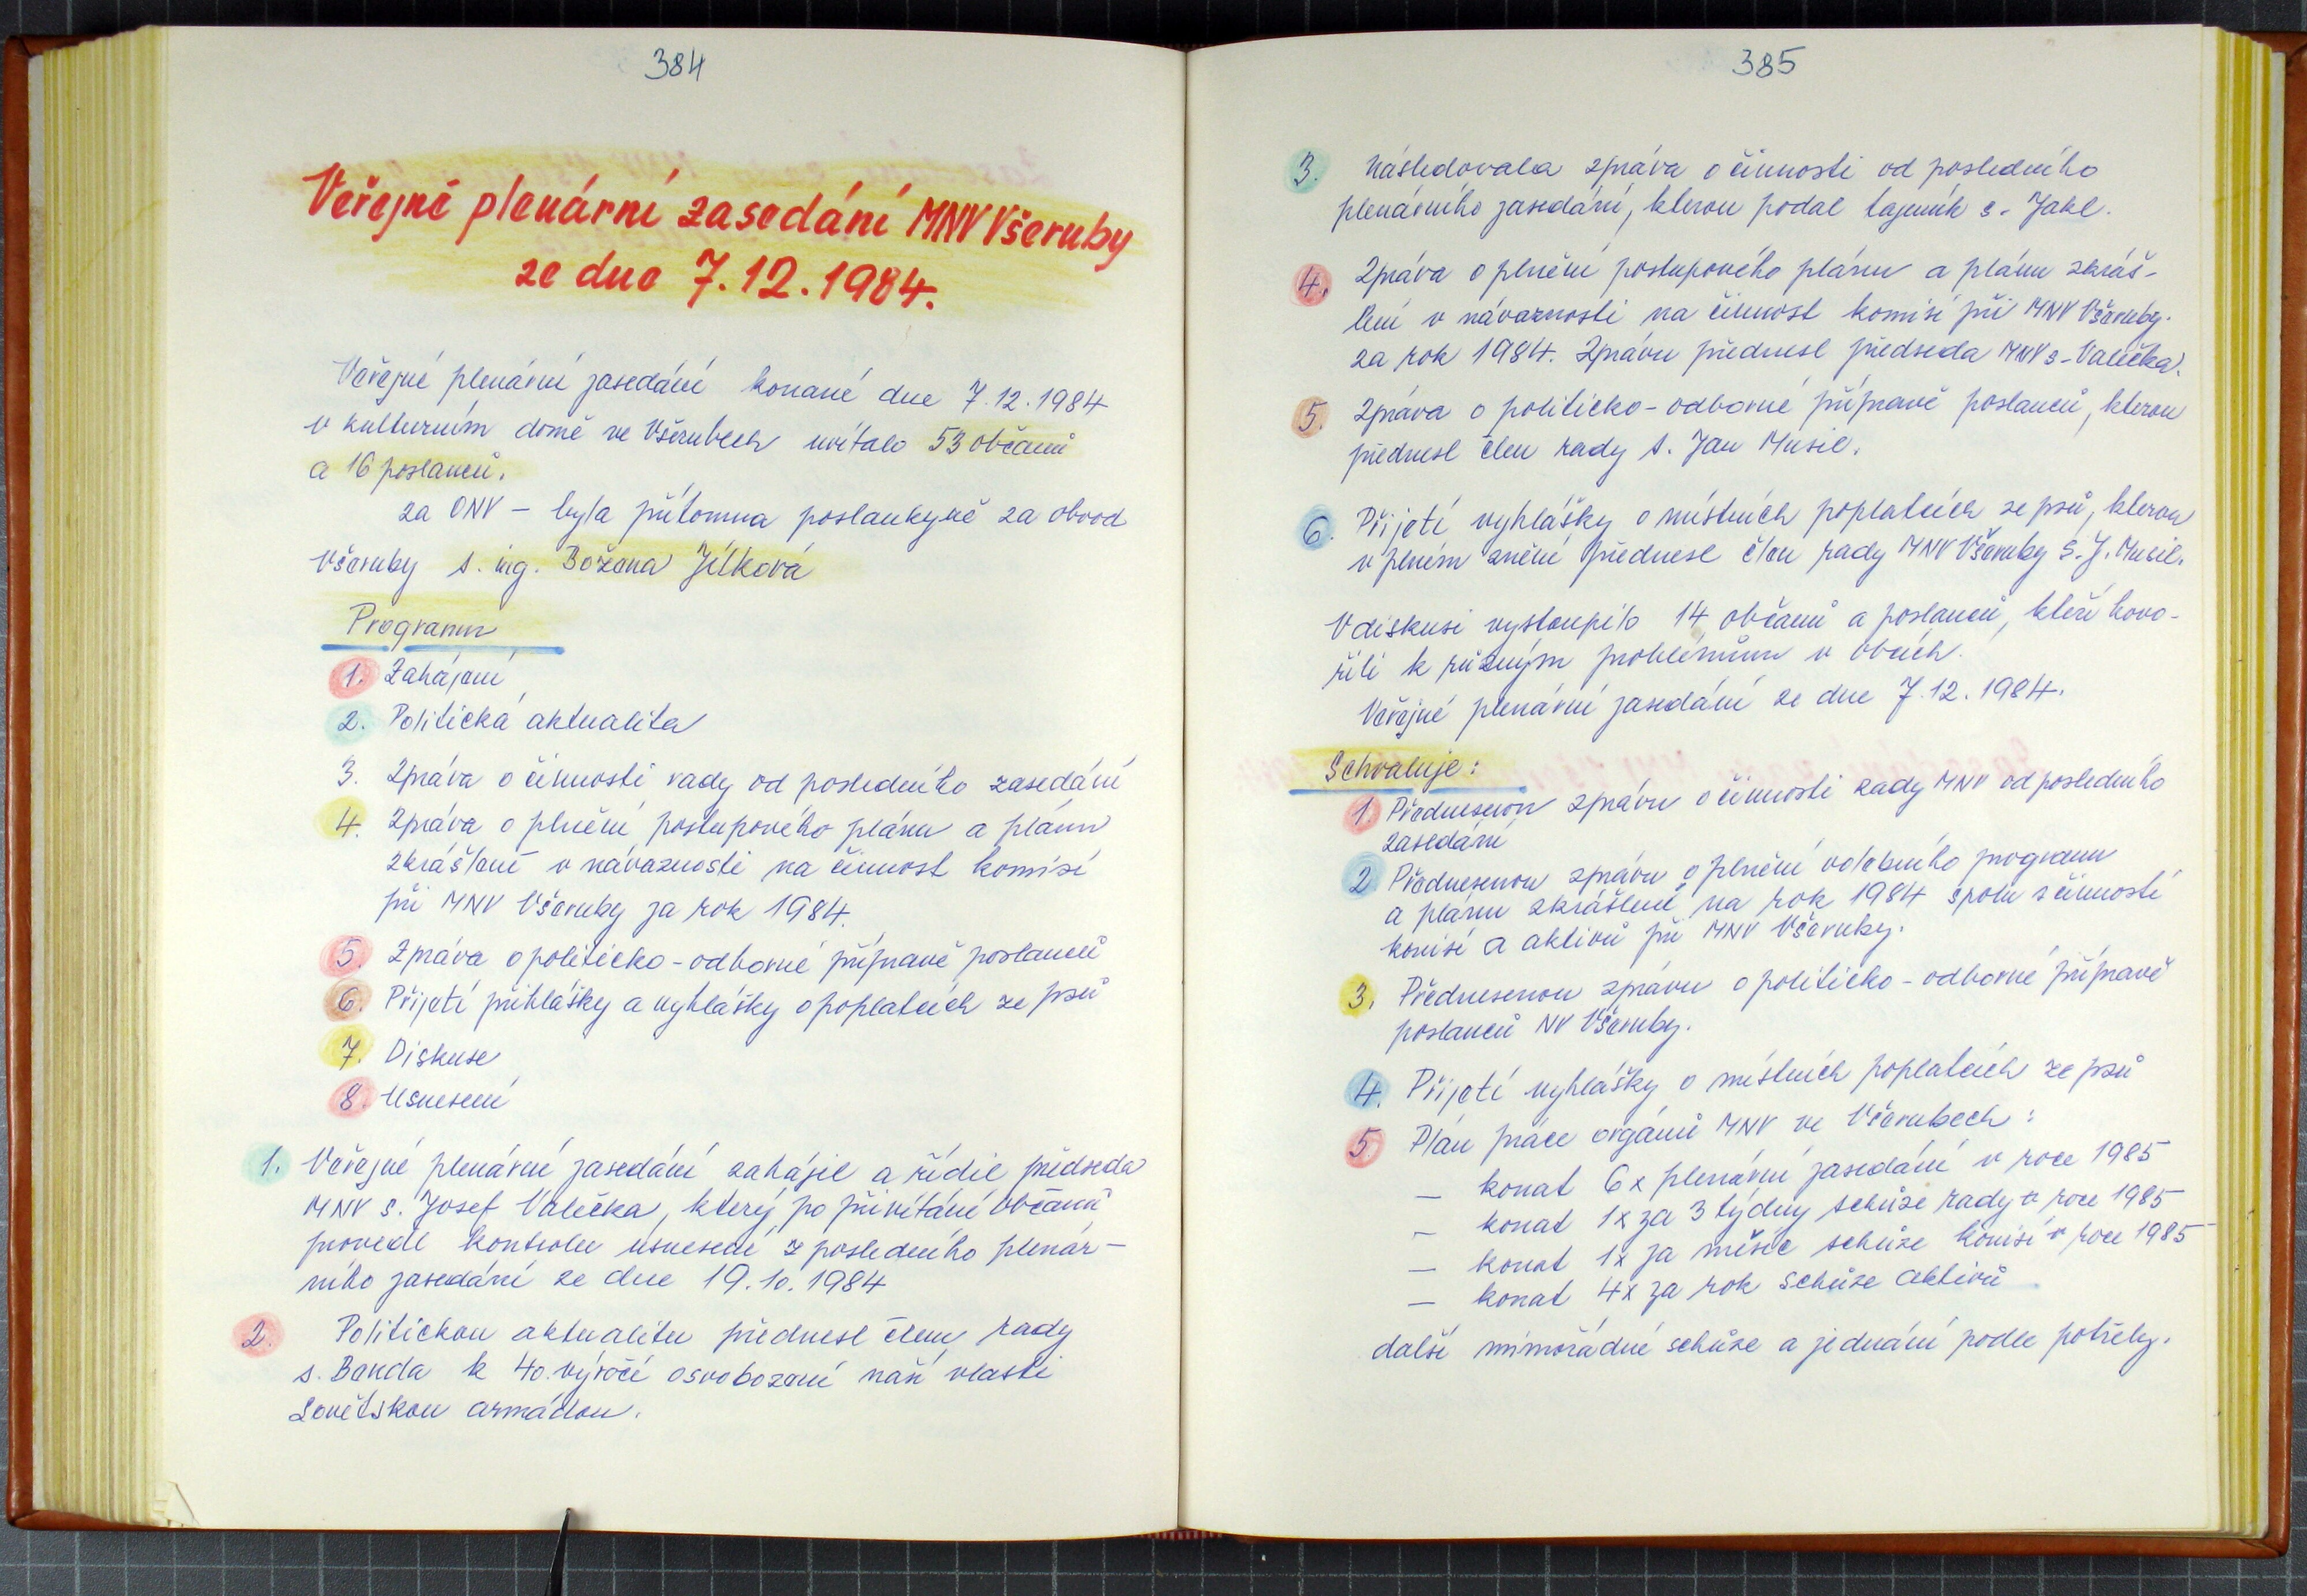 384
Veřejné plenární zasedání MNV Všeruby
ze dne 7.12.1984.
Veřejné plenární zasedání konané dne 7.12.1984
v kulturním domě ve Všerubech uvítalo 53 občanů
a 16 poslanců.
za ONV – byla přítomna poslankyně za obvod
Všeruby s. ing. Božena Jílková
Program
1. Zahájení
2. Politická aktualita
3. Zpráva o činnosti rady od posledního zasedání
4. Zpráva o plnění postupového plánu a plánu
zkrášlení v návaznosti na činnost komisí
při MNV Všeruby za rok 1984.
5. Zpráva o politicko-odborné přípravě poslanců
6. Přijetí přihlášky a vyhlášky o poplatcích ze psů
7. Diskuse
8. Usnesení
1. Veřejné plenární zasedání zahájil a řídil předseda
MNV s. Josef Valečka, který po přivítání občanů
provedl kontrolu usnesení z posledního plenár-
ního zasedání ze dne 19.10.1984
2. Politickou aktualitu přednesl člen rady
s. Banda k 40. výročí osvobození naší vlasti
Sovětskou armádou.
385
3. Následovala zpráva o činnosti od posledního
plenárního zasedání, kterou podal tajemník s. Jakl.
4. Zpráva o plnění postupového plánu a plánu zkráš-
lení v návaznosti na činnost komisí při MNV Všeruby.
za rok 1984. Zprávu přednesl předseda MNV s. Valečka.
5. Zpráva o politicko-odborné přípravě poslanců, kterou
přednesl člen rady s. Jan Musil.
6. Přijetí vyhlášky o místních poplatcích ze psů, kterou
v plném znění přednesl člen rady MNV Všeruby s. J. Musil.
V diskusi vystoupilo 14 občanů a poslanců, kteří hovo-
řili k různým problémům v obcích.
Veřejné plenární zasedání ze dne 7.12.1984.
Schvaluje:
1. Přednesenou zprávu o činnosti rady MNV od posledního
zasedání
2. Přednesenou zprávu o plnění volebního programu
a plánu zkrášlení na rok 1984 spolu s činností
komisí a aktivů při MNV Všeruby.
3. Přednesenou zprávu o politicko-odborné přípravě
poslanců NV Všeruby.
4. Přijetí vyhlášky o místních poplatcích ze psů
5. Plán práce orgánů MNV ve Všerubech:
– konat 6x plenární zasedání v roce 1985
– konat 1x za 3 týdny schůze rady v roce 1985
– konat 1x za měsíc schůze komisí v roce 1985
– konat 4x za rok schůze aktivů
další mimořádné schůze a jednání podle potřeby.